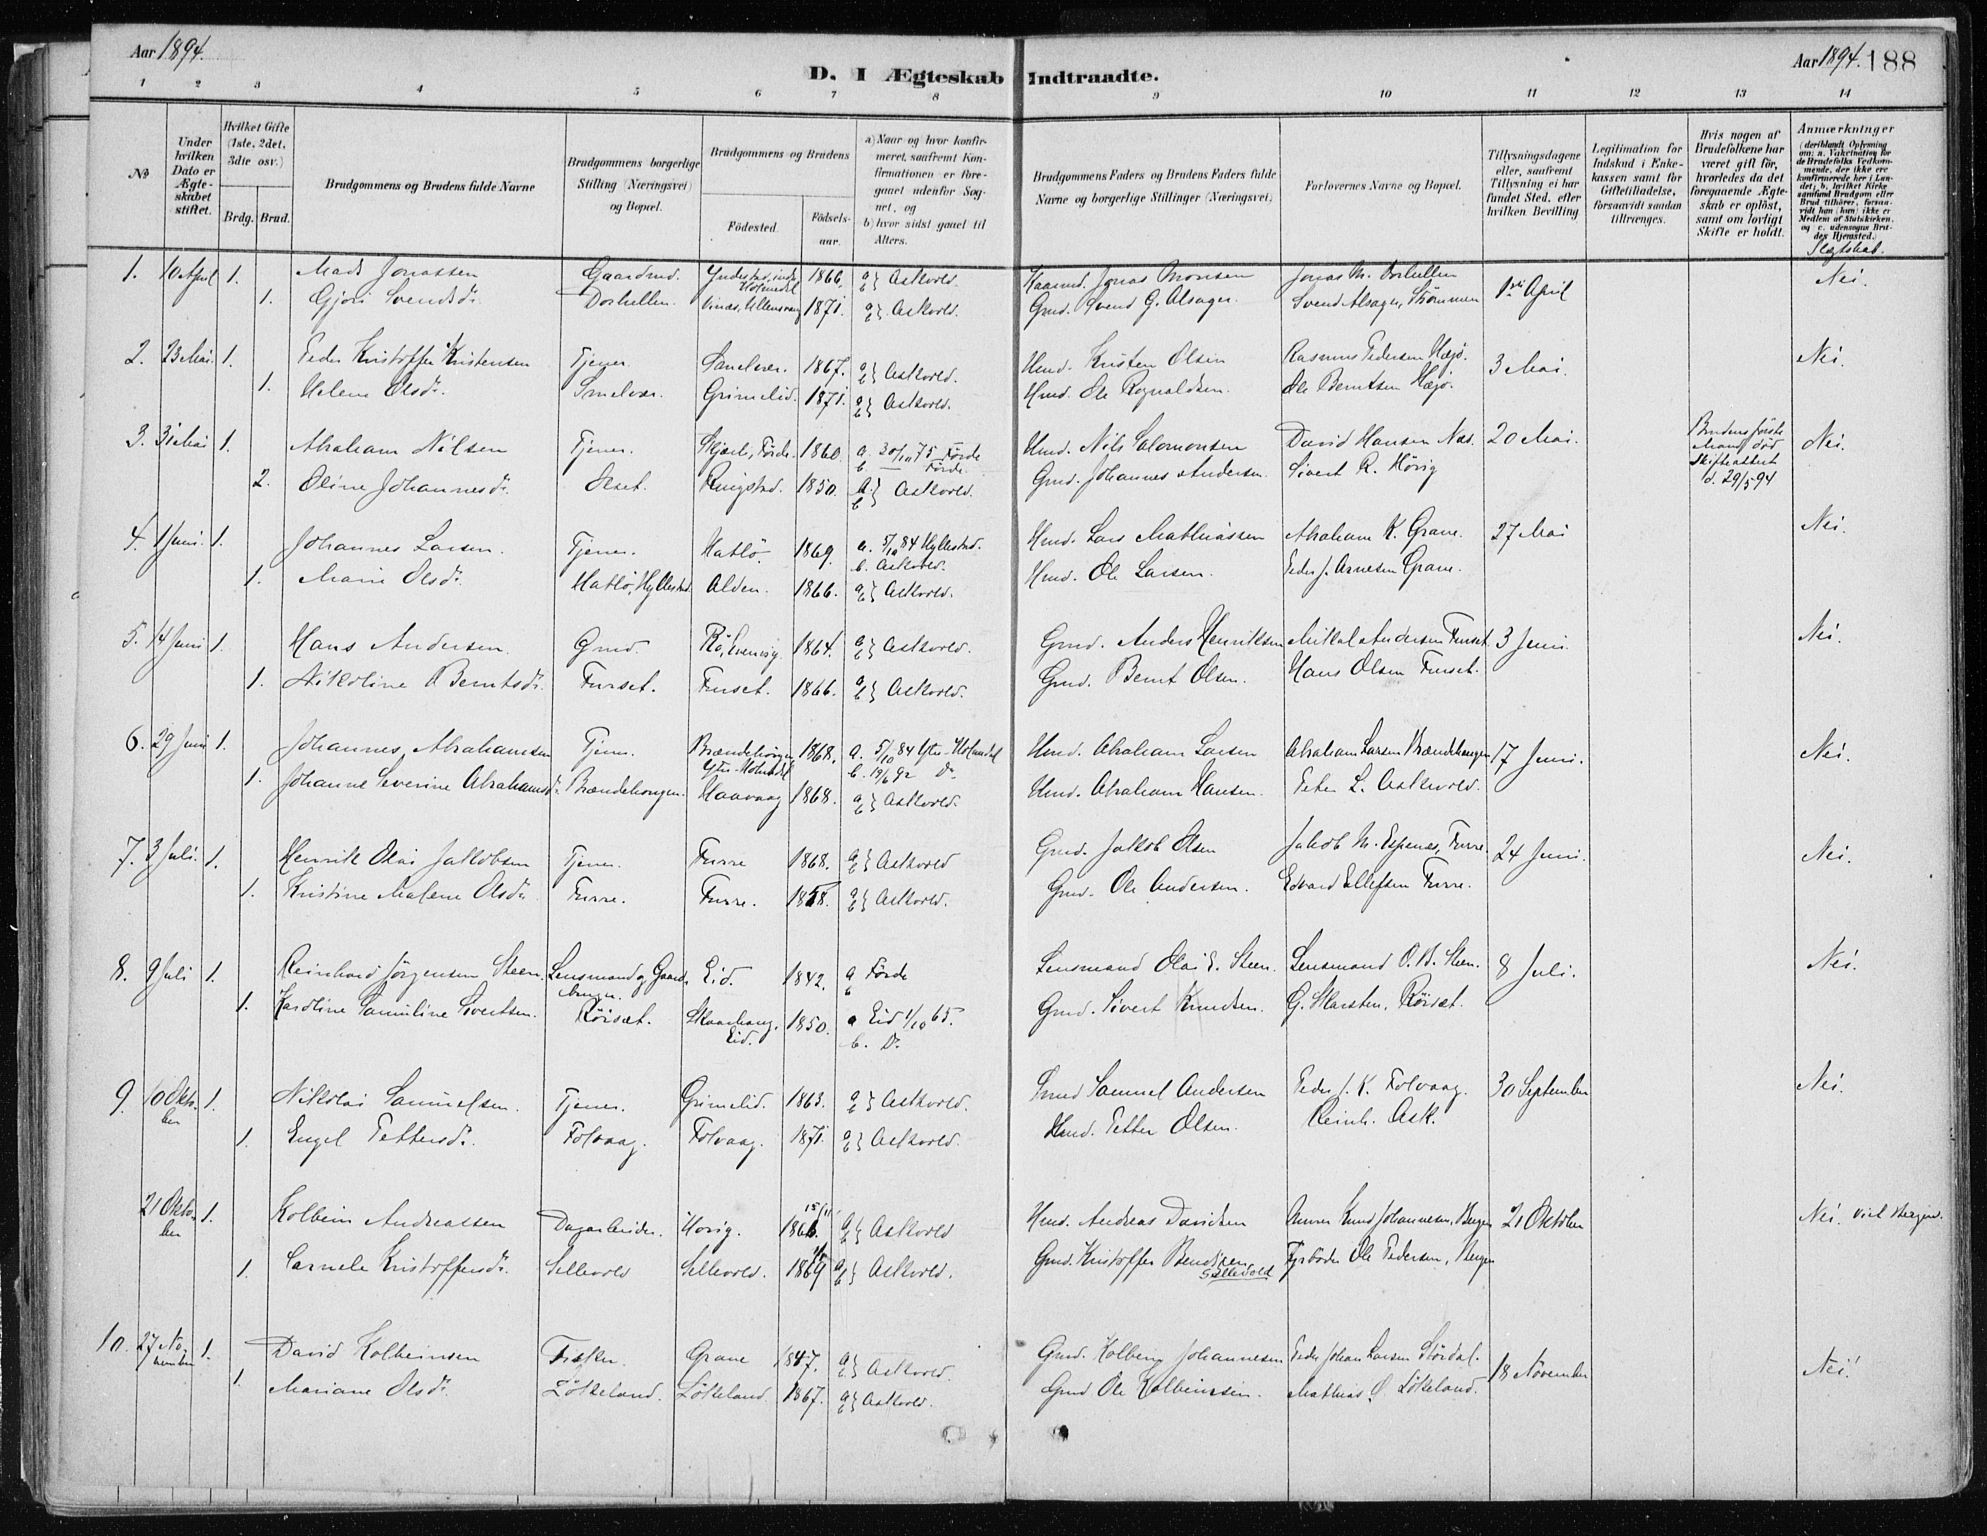 Aar 1894.
D. I Ægteskab Indtraadte.
Aar 1894. 188
1 2 3 4 5 6 7 8 9 10 11 12 13 14
No
Under hvilken Dato er Ægteskabet stiftet.
Hvilket Gifte (1ste, 2det, 3die osv.)
Brdg. Brud.
Brudgommens og Brudens fulde Navne
Brudgommens borgerlige Stilling (Næringsvei) og Bopæl.
Brudgommens og Brudens
Fødested.
Fødselsaar.
a) Naar og hvor konfirmeret, saafremt Konfirmationen er foregaaet udenfor Sognet, og
b) hvor sidst gaaet til Alters.
Brudgommens Faders og Brudens Faders fulde Navne og borgerlige Stillinger (Næringsvei)
Forlovernes Navne og Bopæl.
Tillysningsdagene eller, saafremt Tillysning ei har fundet Sted, efter hvilken Bevilling
Legitimation for Indskud i Enkekassen samt for Giftetilladelse, forsaavidt saadan tiltrænges.
Hvis nogen af Brudefolkene har været gift før, hvorledes da det foregaaende Ægteskab er opløst, samt om lovligt Skifte er holdt.
Anmærkninger
(deriblandt Oplysning om: a. Vakcination for de Brudefolks Vedkommende, der ikke ere konfirmerede her i Landet; b. hvilket Kirkesamfund Brudgom eller Brud tilhører, forsaavidt han (hun) ikke er Medlem af Statskirken, og c. udensogns Brudes Hjemsted.)
Slægtskab.
1. 10 April 1. Mads Jonassen Gaardmd. 1866. a} b} Askvold. Jonas Monsen Jonas M. 1ste April Nei.
1. Gjøri Svendsdr. Vinæs, Ullensvang 1871. a} b} Askvold. Gmd. Svend G. Alsager. Svend Alsager, Strømmen
2. 23 Mai. 1. Peder Kristoffer Kristensen Tjener. 1867. a} b} Askvold. Hmd. Kristen Olsen Rasmus Pedersen 3 Mai. Nei.
1. Helene Olsdr. Smelvær. Grimelid. 1871. a} b} Askvold. Hmd. Ole Rognaldsen. Ole Berntsen
3. 31 Mai 1. Abraham Nilsen Tjener. Førde. 1860. a. 75 Førde b. Førde Hmd. Nils Salomonsen David Hansen Næs. 20 Mai. Brudens første Mand død Skifteattest d. 29/5 94 Nei.
2. Oline Johannesdr. Ringstad. 1850. a} b} Askvold. Gmd. Johannes Andersen. Sivert R. Hovig
4. 1 Juni. 1. Johannes Larsen. Tjener. Hatlø 1869. a. 5/10 84 Hyllestad. b. Askvold. Hmd. Lars Mathiassen Abraham K. Grane. 27 Mai Nei.
1. Marie Olsdr. Hatlø, Hyllestad Alden. 1866. a} b} Askvold. Hmd. Ole Larsen. Peder J. Arnesen Grane.
5. 14 Juni 1. Hans Andersen. Gmd. 1864. a} b} Askvold. Gmd. Anders Henriksen Mikkal Andersen Furset. 3 Juni. Nei.
1. Nikoline Berntsdr. Furset. Furset. 1866. a} b} Askvold. Gmd. Bernt Olsen. Hans Olsen Furset.
6. 29 Juni 1. Johannes Abrahamsen Tjener. Ytre-Holmedal 1868. a. 5/10 84 Ytre-Holmedal b. 19/6 92 Do. Hmd. Abraham Larsen Abraham Larsen Brændehougen 17 Juni. Nei.
1. Johanne Severine Abrahamsdr. Brændehougen. Haavaag 1868. a} b} Askvold. Hmd. Abraham Hansen. Peter L. Askvold.
7. 3 Juli. 1. Henrik Olai Jakobsen Tjener. Furre 1868. a} b} Askvold Gmd. Jakob Olsen Jakob M. Espenes, Furre. 24 Juni. Nei.
1. Kristine Malene Olsdr. Furre. Furre. a} b} Askvold. Gmd. Ole Andersen. Edvard Ellefsen Furre.
8. 9 Juli 1. Reinhard Jørgensen Steen. Lensmand og Gaardbruger. Eid. 1842. a Førde b Lensmand Olai E. Steen. Lensmand O. B. Steen. 8 Juli. Nei.
1. Karoline Pauline Sivertsen. Røiset. Skaarhaug. Eid. 1850. a Eid 1/10 65. b. Do. Gmd. Sivert Knudsen. G. Skarsten, Røiset.
9. 10 Oktober 1. Nikolai Samuelsen. Tjener. Grimelid. 1863. a} b} Askvold. Samuel Andersen Peder J. K. Folvaag. 30 September Nei.
1. Engel Pettersdr. Folvaag. Folvaag. 1871. a} b} Askvold. Hmd. Petter Olsen. Reinh. Ask.
21 Oktober 1. Kolbein Andreassen Dagarbeider. Hovig. 15/11 1866 a} b} Askvold Hmd. Andreas Davidsen Murer Knud Johannesen, Bergen 21 Oktober Nei. Viet Bergen.
1. Cornele Kristoffersdr. Sellevold Sellevold. 1869 a} b} Askvold. Gmd. Kristoffer Bendixen Sellevold Fyrbøder Ole Pedersen, Bergen
10. 27 November 1. David Kolbeinsen Fisker. Grane 1847. a} b} Askvold. Gmd. Kolbein Johannesen Peder Johan Larsen Stordal. 18 November Nei.
1. Mariane Olsdr. Løkeland. Løkeland 1867. a} b} Askvold. Gmd Ole Kolbeinsen. Mathias O. Løkeland.